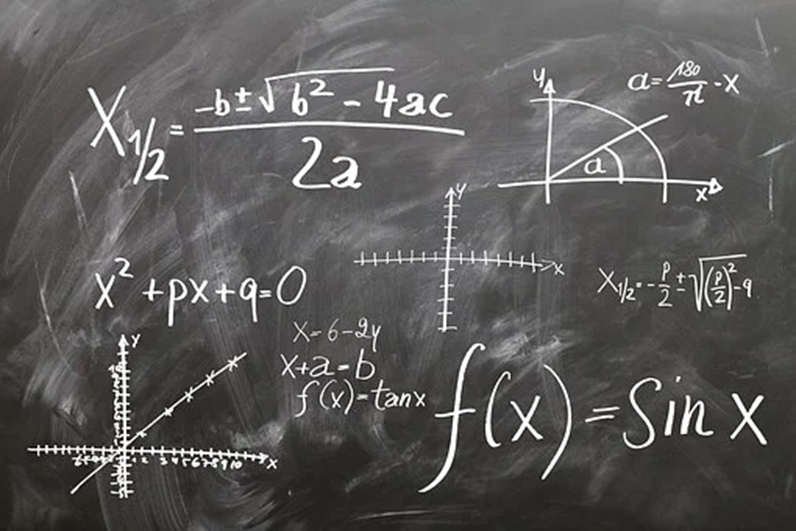 X1/2 = -b±√b² - 4ac / 2a
y
a = 180/π · x
a
x
y
x
x² + px + q = 0
X1/2 = -p/2 ± √(p/2)² - q
x = 6 - 2y
x + a = b
f(x) = tan x
f(x) = Sin x
y
x